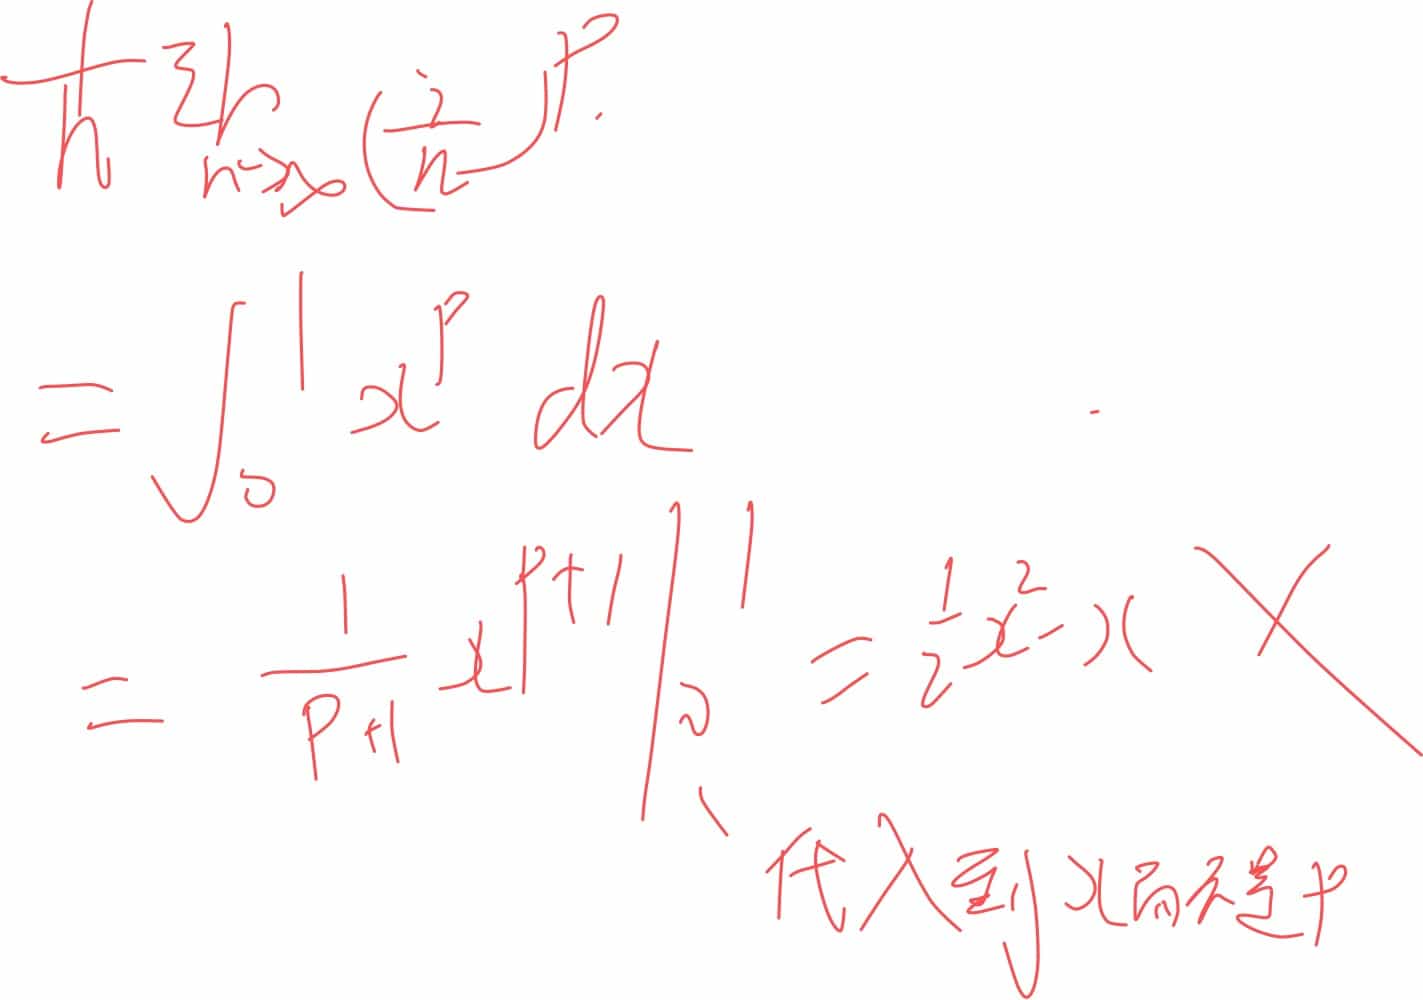 1/n Σ n n->∞ (i/n)^p.
= ∫₀¹ x^p dx
= 1/(p+1) x^(p+1) |₀¹ = 1/2 x² - x ( X
代入到x而不是p